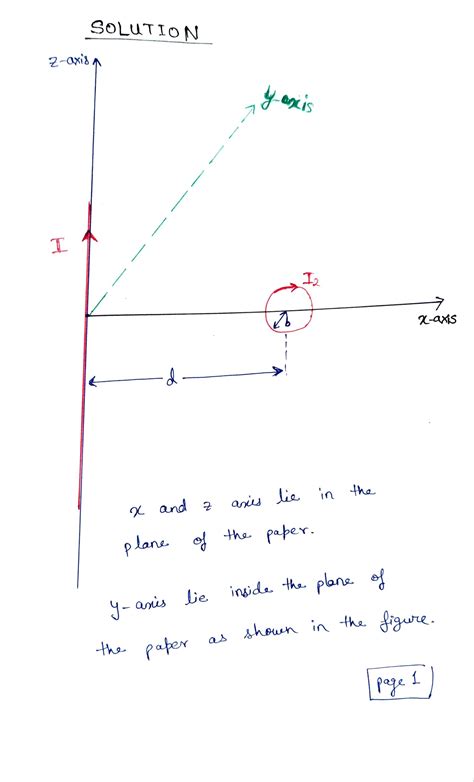 SOLUTION
z-axis
y-axis
I
I2
b
x-axis
d
x and z axis lie in the
plane of the paper.
y-axis lie inside the plane of
the paper as shown in the figure.
page 1